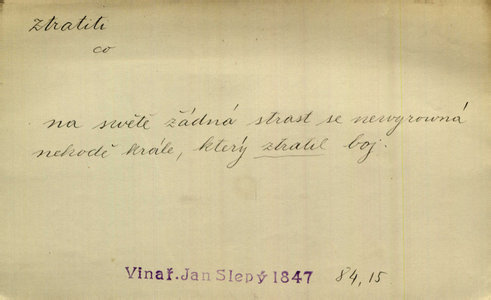 ztratiti
co
na swětě žádná strast se newyrowná
nehodě krále, který ztratil boj.
Vinař.Jan Slepý 1847 84,15